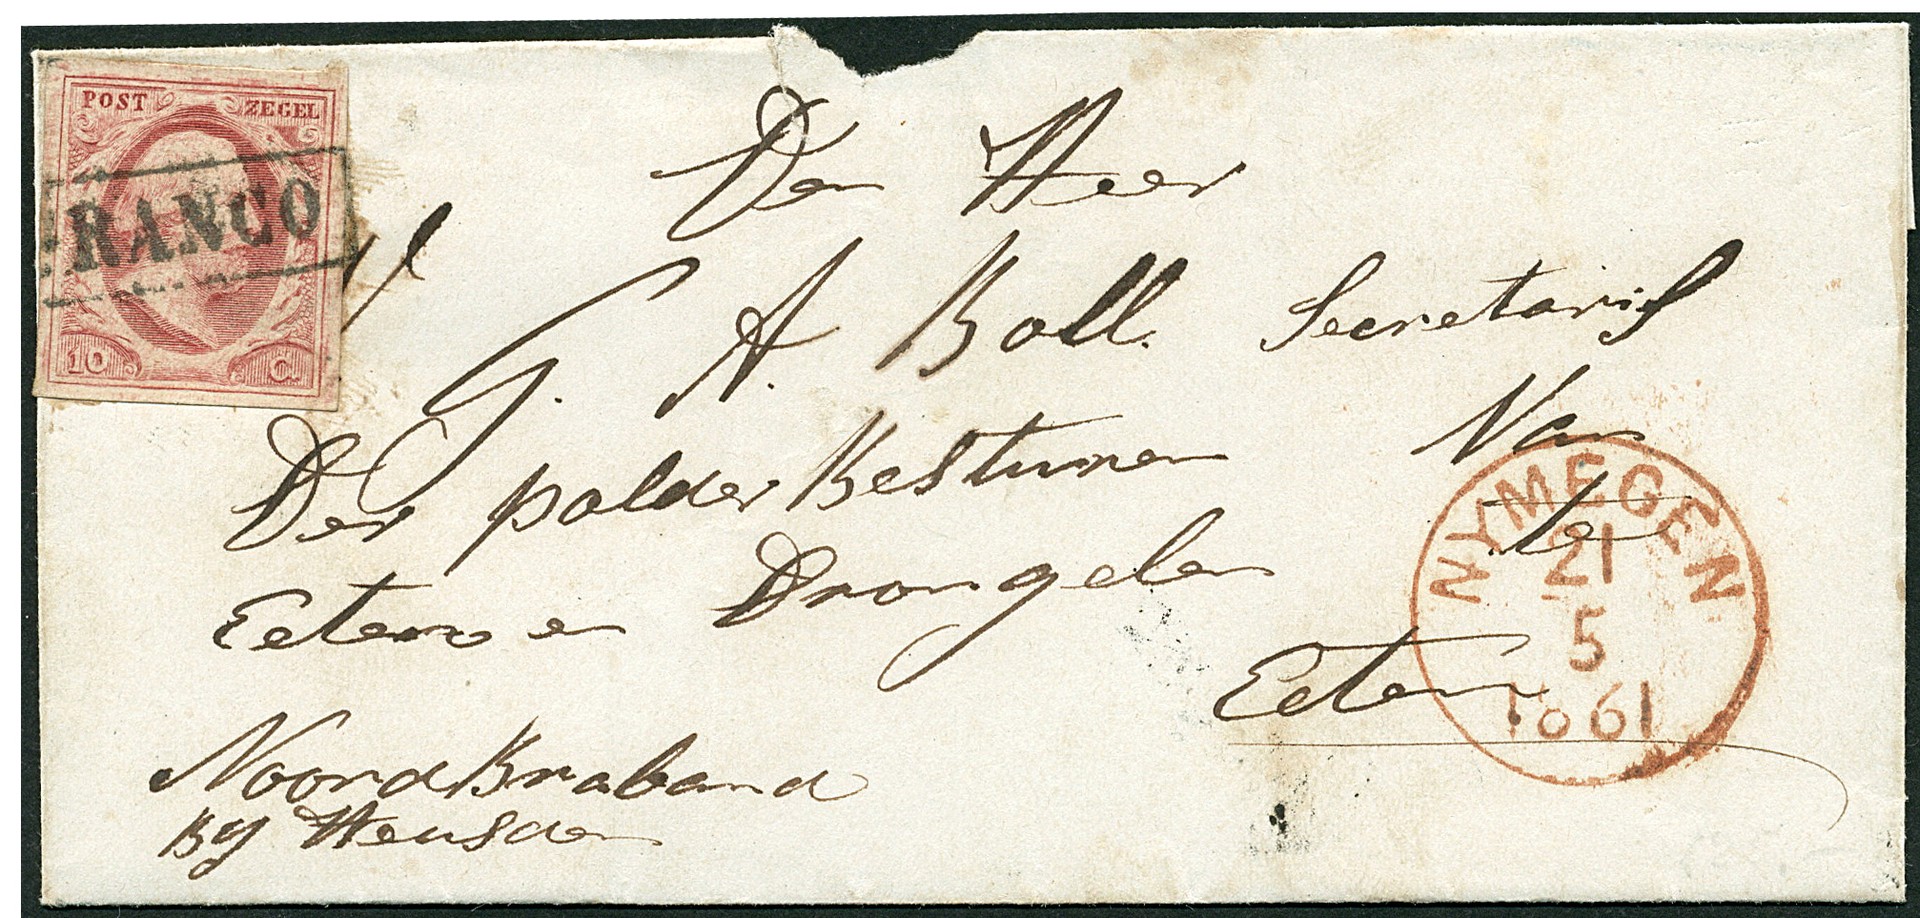 POST ZEGEL
FRANCO
10 C.
Den Heer
G. A. Boll. Secretaris
Der polder Besturen Van
Eeten en Drongelen Te
Eeten
Noord Braband
By Heusden
NYMEGEN
21
5
1861